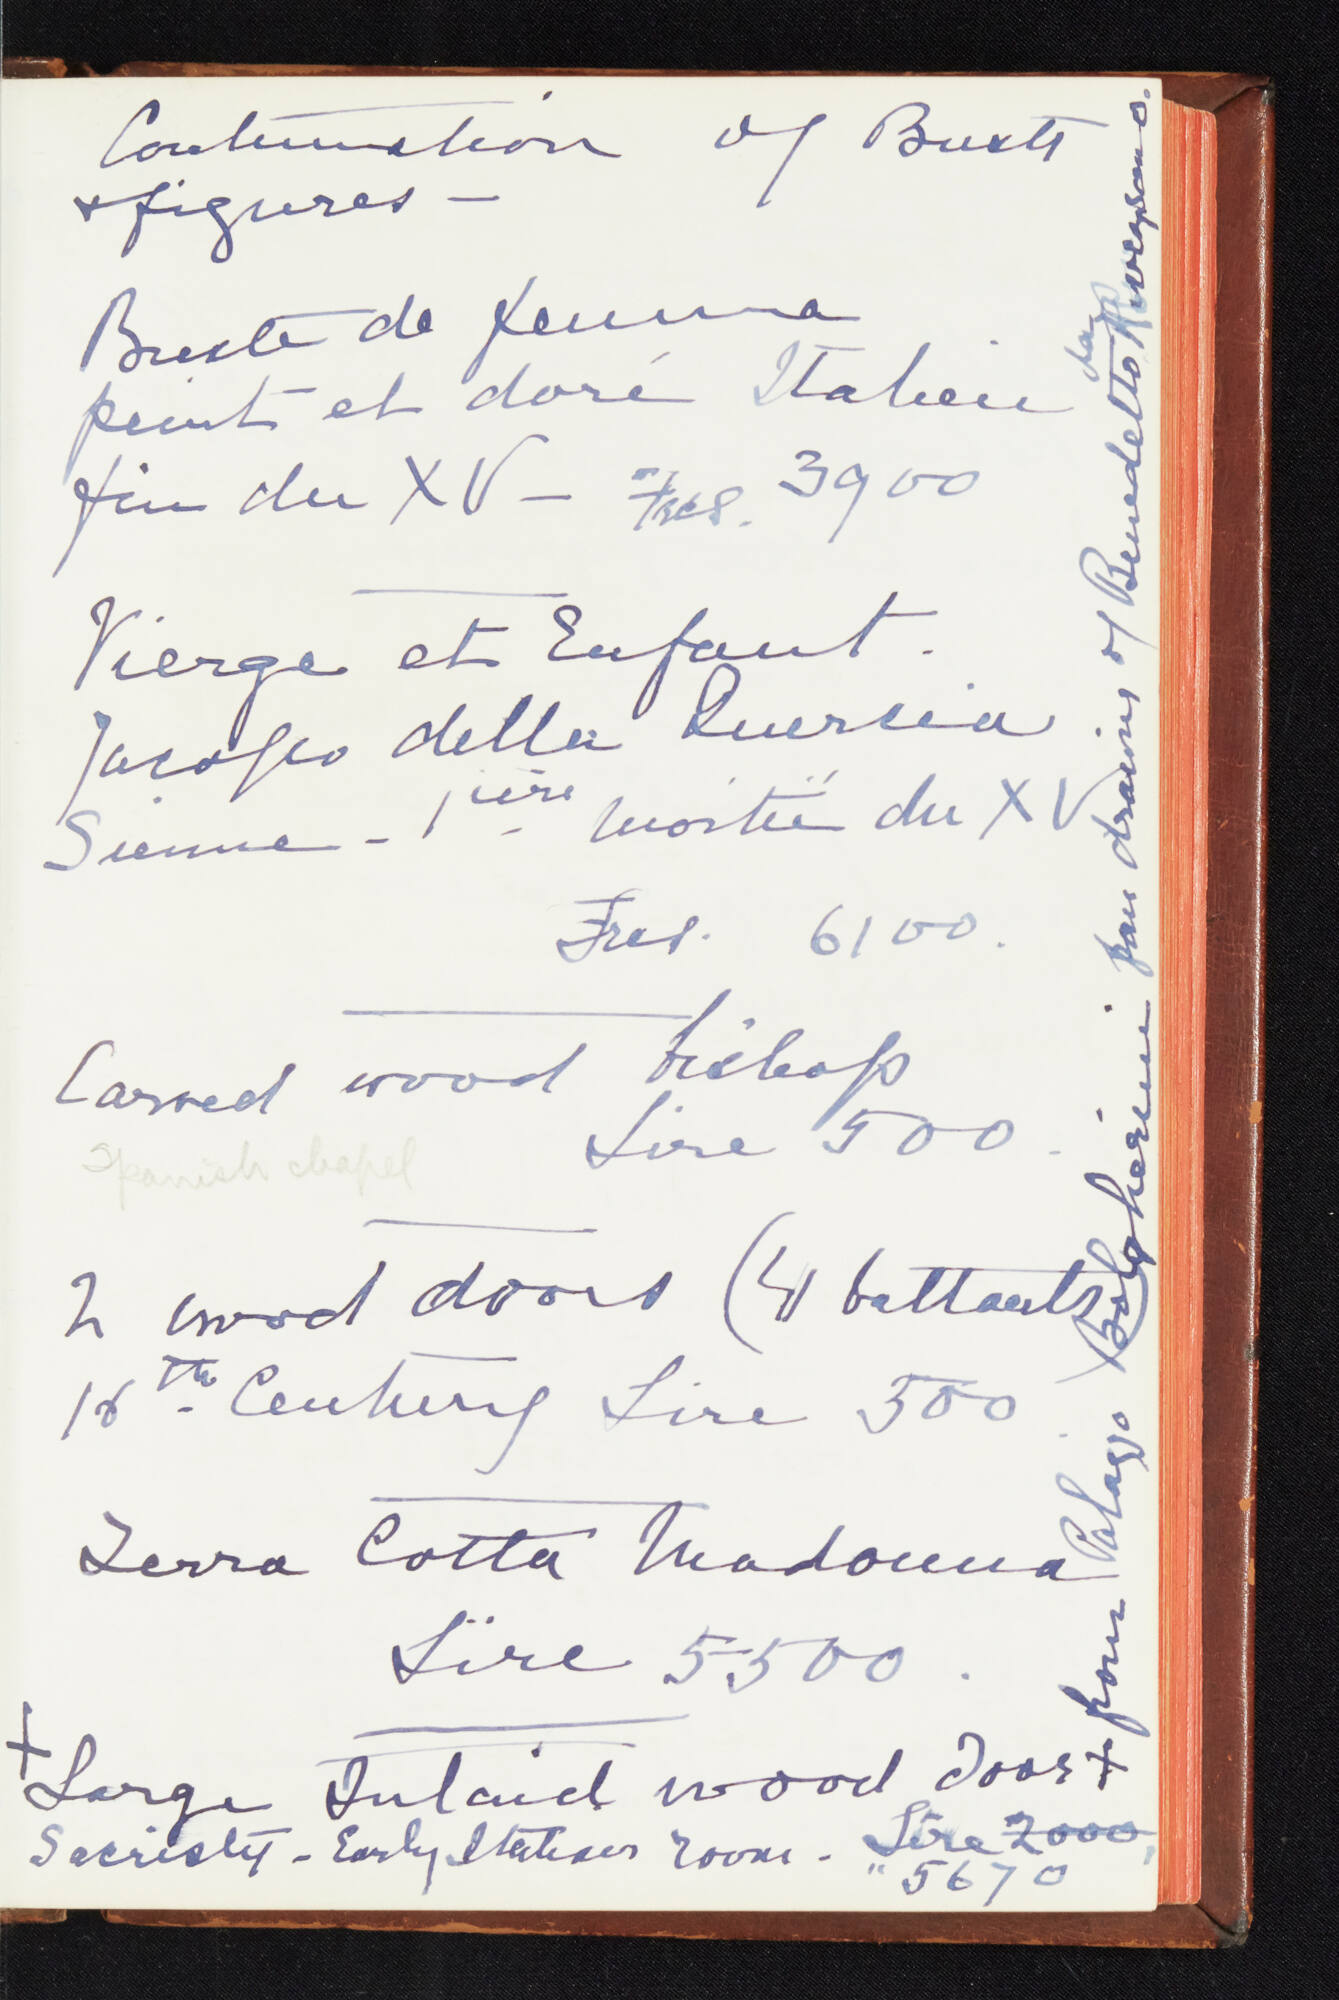 Continuation of Busts
& figures -
Buste de femme
peint et doré Italien
fin du XV - Frcs. 3900
Vierge et Enfant.
Jacopo della Quercia
Sienne - 1ière moitié du XV
Frcs. 6100.
Carved wood bishop
Lire 500.
Spanish chapel
2 wood doors (4 battants)
16th Century Lire 500.
Terra Cotta Madonna
Lire 5500.
+
Large Inlaid wood door +
Sacristy - Early Italian room - Lire 2000
" 5670
from Palazzo from drawing of Benedetto da